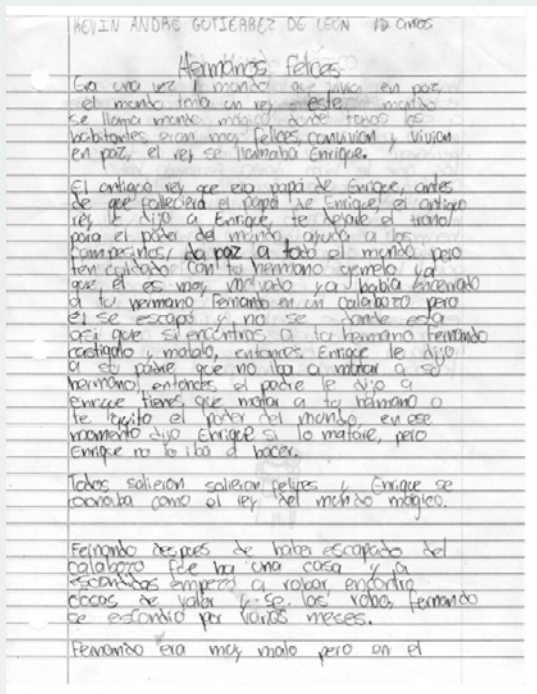 KEVIN ANDRE GUTIERREZ DE LEÓN 12 años
Hermanos felices
Era una vez 1 mundo que vivia en paz,
el mundo tenia un rey este mundo
se llama mundo mágico donde todos los
habitantes eran muy felices, convivian y vivian
en paz, el rey se llamaba Enrique.
El antiguo rey que era papá de Enrique, antes
de que falleciera el papá de Enrique, el antiguo
rey le dijo a Enrique, te dejare el trono/
para el poder del mundo, ayuda a los
campesinos/ da paz a todo el mundo pero
ten cuidado con tu hermano gemelo ya
que, el es muy malvado ya habia encerrado
a tu hermano Fernando en un calabozo pero
el se escapó y no se donde esta
asi que si encontras a tu hermano fernando
castigalo y matalo, entonces Enrique le dijo
a su padre que no iba a matar a su
hermano, entonces el padre le dijo a
enrique tienes que matar a tu hermano o
te quito el poder del mundo, en ese
momento dijo Enrique si lo matare, pero
Enrique no lo iba a hacer.
Todos salieron salieron felices y Enrique se
coronaba como el rey del mundo mágico.
Fernando despues de haber escapado del
calabozo fue ha una casa y a
escondidas empezó a robar, encontro
cocas de valor y se las robo, fernando
se escondio por varios meses.
Fernando era muy malo pero en el